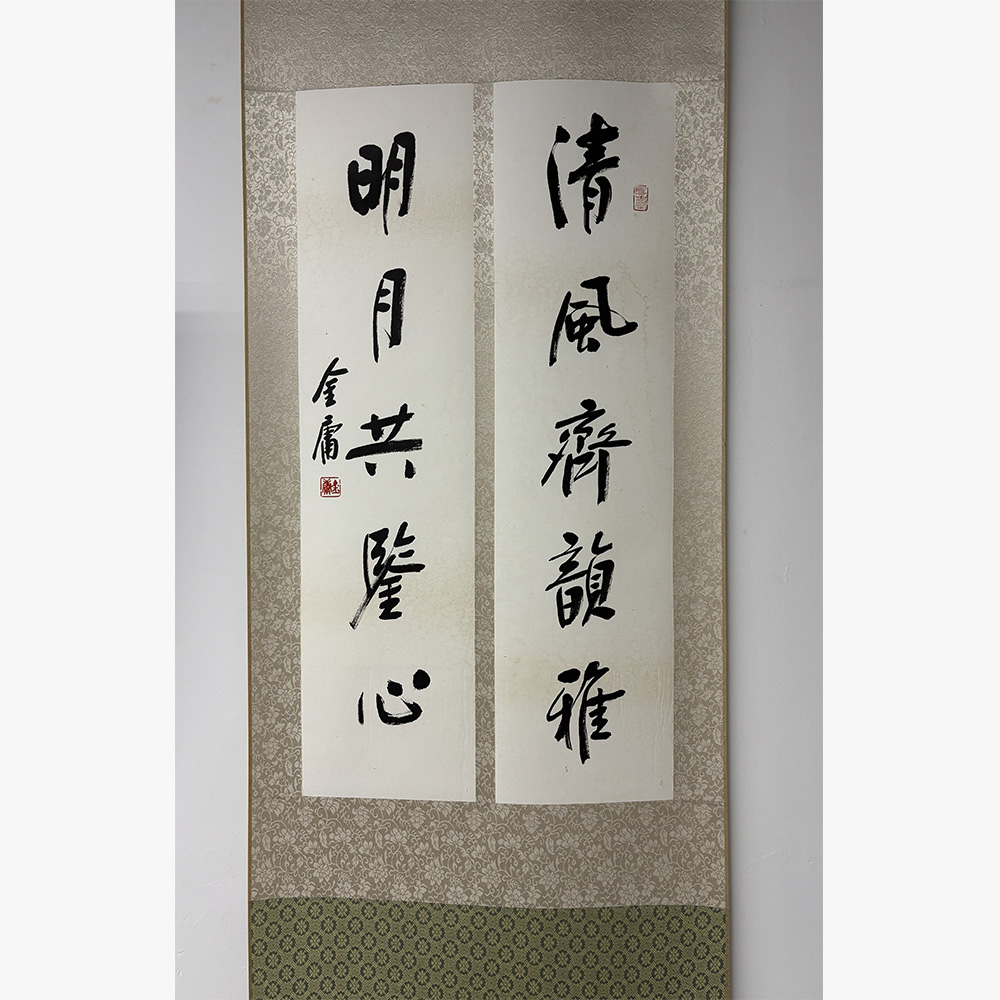 清風齊韻雅
明月共鑒心
金庸